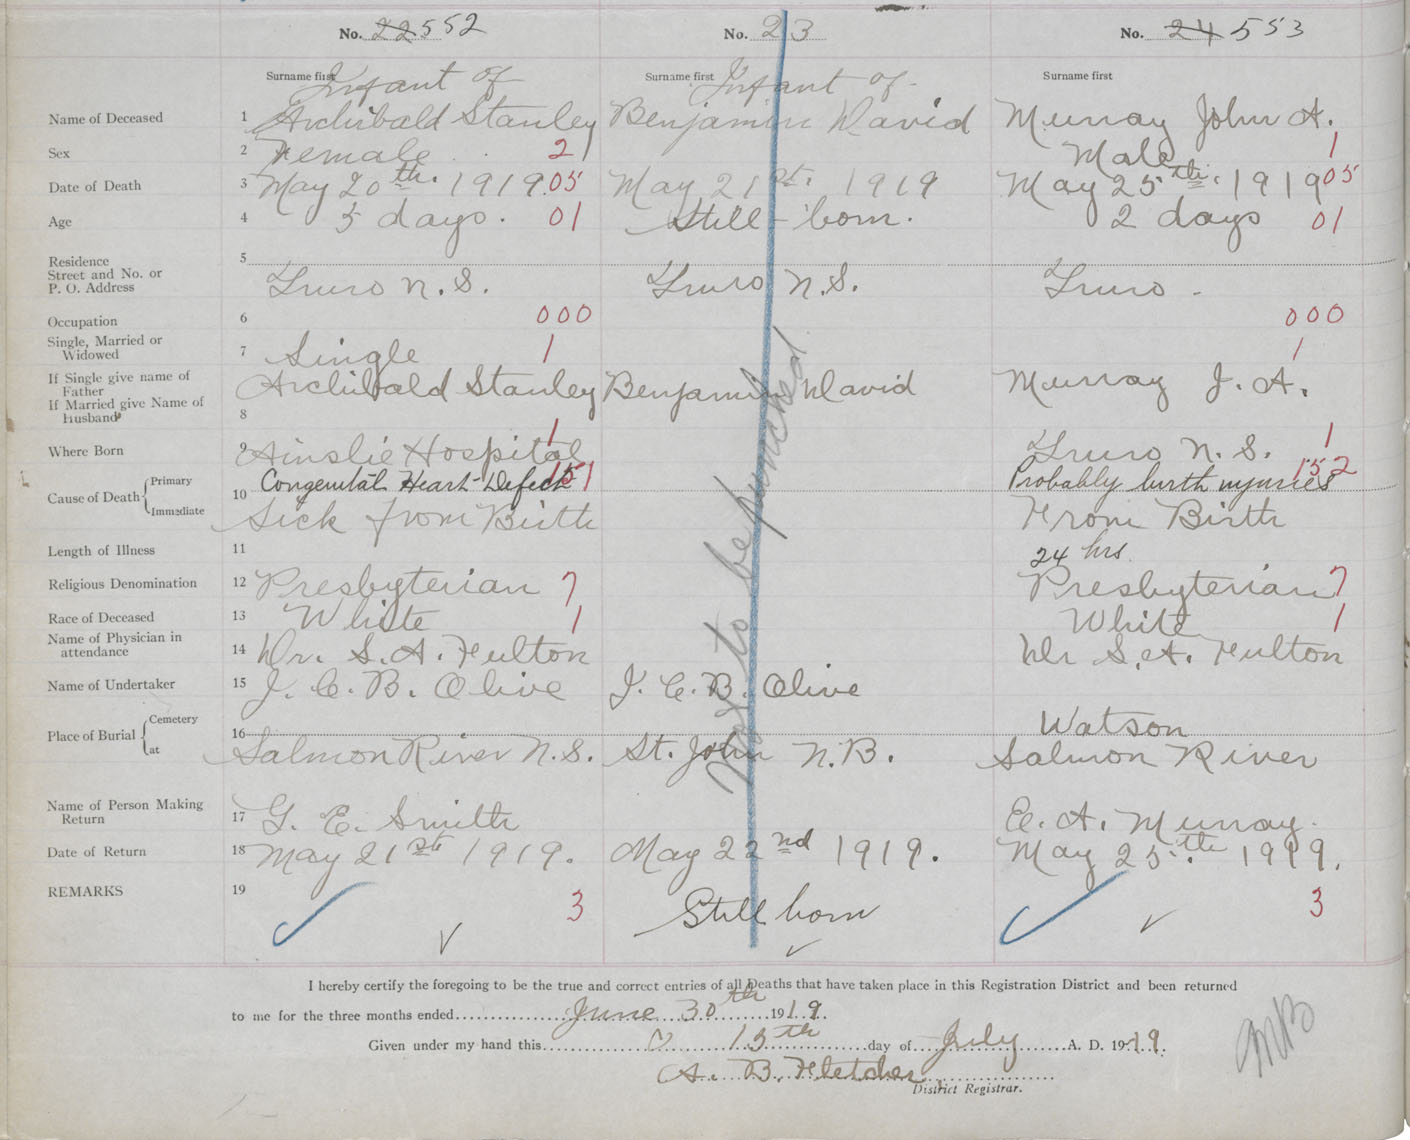 No. 22 552 No. 23 No. 24 553
Surname first Infant of Surname first Infant of Surname first
Name of Deceased 1 Archibald Stanley Benjamin David Murray John A.
Sex 2 Female 2 Male 1
Date of Death 3 May 20th. 1919. 05 May 21st. 1919 May 25th. 1919 05
Age 4 5 days. 01 Still-born. 2 days 01
Residence 5
Street and No. or
P. O. Address Truro N.S. Truro N.S. Truro -
Occupation 6 000 000
Single, Married or
Widowed 7 Single 1 1
If Single give name of
Father Archibald Stanley Benjamin David Murray J. A.
If Married give Name of
Husband 8
Where Born 9 Ainslie Hospital 1 Truro N.S. 1
Cause of Death Primary Congenital Heart-Defect 151 Probably birth injuries 152
10
Immediate Sick from Birth From Birth
Length of Illness 11 24 hrs
Religious Denomination 12 Presbyterian 7 Presbyterian 7
Race of Deceased 13 White 1 White 1
Name of Physician in
attendance 14 Dr. S. A. Fulton Dr S. A. Fulton
Name of Undertaker 15 J. C. B. Olive J. C. B. Olive
Place of Burial Cemetery 16 Watson
at Salmon River N.S. St. John N.B. Salmon River
Not to be punched
Name of Person Making
Return 17 G. E. Smith E. A. Murray.
Date of Return 18 May 21st 1919. May 22nd 1919. May 25th. 1919.
REMARKS 19 3 Still born 3
I hereby certify the foregoing to be the true and correct entries of all Deaths that have taken place in this Registration District and been returned
to me for the three months ended June 30th 1919.
Given under my hand this 15th day of July A. D. 1919.
A. B. Fletcher
District Registrar.